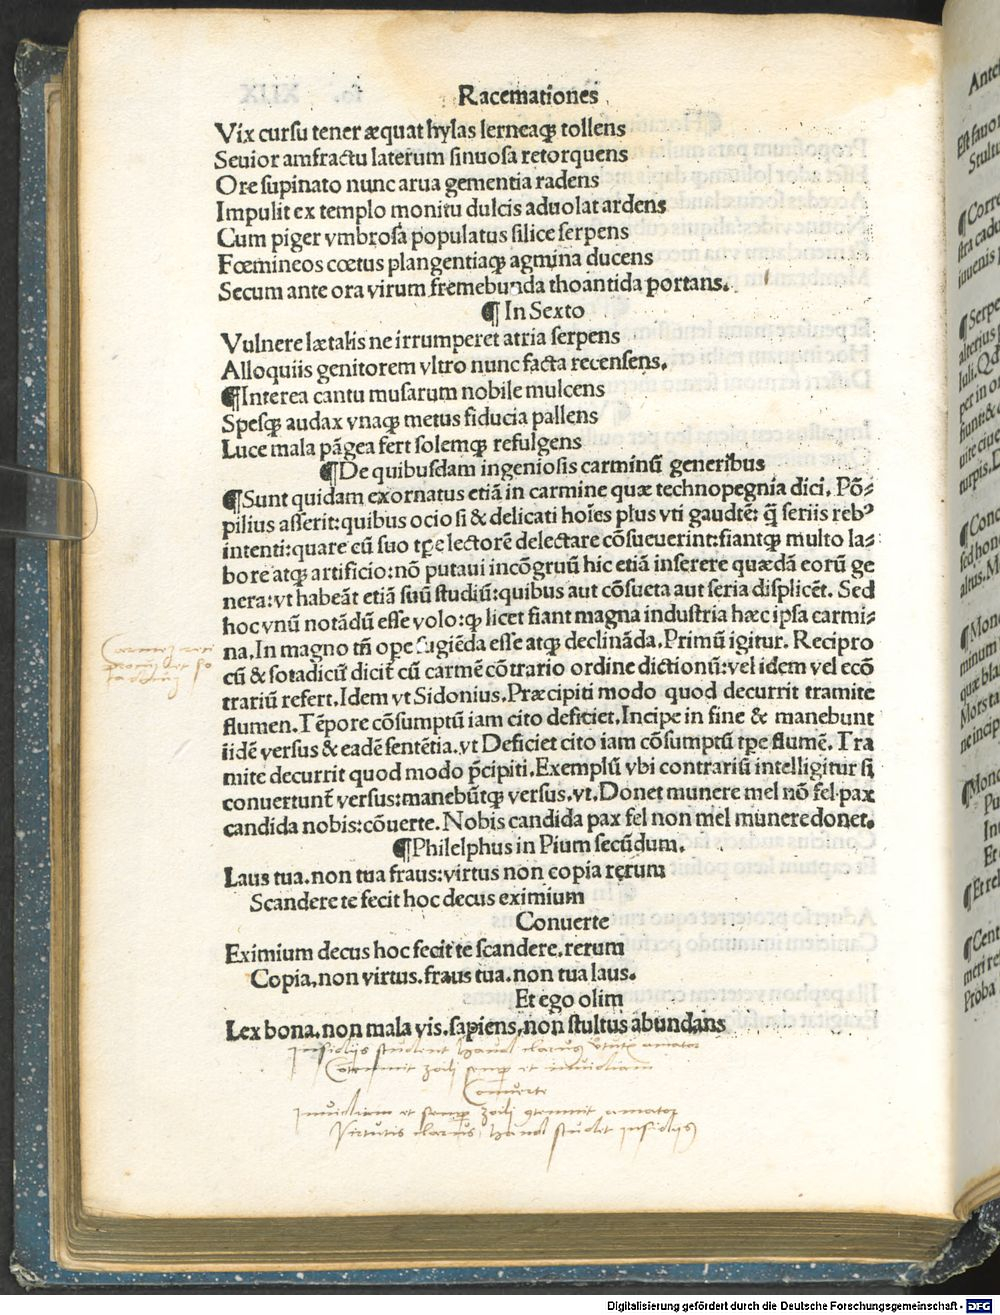 Racemationes
Vix cursu tener æquat hylas lerneaqꝫ tollens
Seuior amfractu laterum sinuosa retorquens
Ore supinato nunc arua gementia radens
Impulit ex templo monitu dulcis aduolat ardens
Cum piger vmbrosa populatus silice serpens
Fœmineos cœtus plangentiaqꝫ agmina ducens
Secum ante ora virum fremebunda thoantida portans.
¶ In Sexto
Vulnere lætalis ne irrumperet atria serpens
Alloquiis genitorem vltro nunc facta recensens.
¶Interea cantu musarum nobile mulcens
Spesqꝫ audax vnaqꝫ metus fiducia pallens
Luce mala pāgea fert solemqꝫ refulgens
¶De quibusdam ingeniosis carminū generibus
¶Sunt quidam exornatus etiā in carmine quæ technopegnia dici. Pō⸗
pilius asserit:quibus ociosi & delicati hoīes plus vti gaudēt: q̄ seriis rebꝰ
intenti:quare cū suo tꝑe lectorē delectare cōsueuerint:fiantqꝫ multo la⸗
bore atqꝫ artificio:nō putaui incōgruū hic etiā inserere quædā eorū ge
nera:vt habeāt etiā suū studiū:quibus aut cōsueta aut seria displicēt. Sed
hoc vnū notādū esse volo:qꝫ licet fiant magna industria hæc ipsa carmi⸗
na.In magno tn̄ ope fugiēda esse atqꝫ declināda.Primū igitur. Recipro
cū & sotadicū dicit̄ cū carmē cōtrario ordine dictionū:vel idem vel ecō
trariū refert.Idem vt Sidonius.Præcipiti modo quod decurrit tramite
flumen.Tēpore cōsumptū iam cito deficiet.Incipe in fine & manebunt
iidē versus & eadē sentētia.vt Deficiet cito iam cōsumptū tꝑe flumē. Tra
mite decurrit quod modo p̄cipiti.Exemplū vbi contrariū intelligitur si
conuertunt̄ versus:manebūtqꝫ versus.vt.Donet munere mel nō fel pax
candida nobis:cōuerte.Nobis candida pax fel non mel munere donet.
¶Philelphus in Pium secūdum.
Laus tua.non tua fraus:virtus non copia rerum
Scandere te fecit hoc decus eximium
Conuerte
Eximium decus hoc fecit te scandere.rerum
Copia.non virtus.fraus tua.non tua laus.
Et ego olim
Lex bona.non mala vis.sapiens.non stultus abundans
Insidijs student haud clarus virtutis amator
Cōtemnit zoili semper et inuidiam
Conuerte
Inuidiam et semper zoili contemnit amator
Virtutis clarus, haud studet insidijs
Carmen reci
procum et so
tadicum
Digitalisierung gefördert durch die Deutsche Forschungsgemeinschaft - DFG